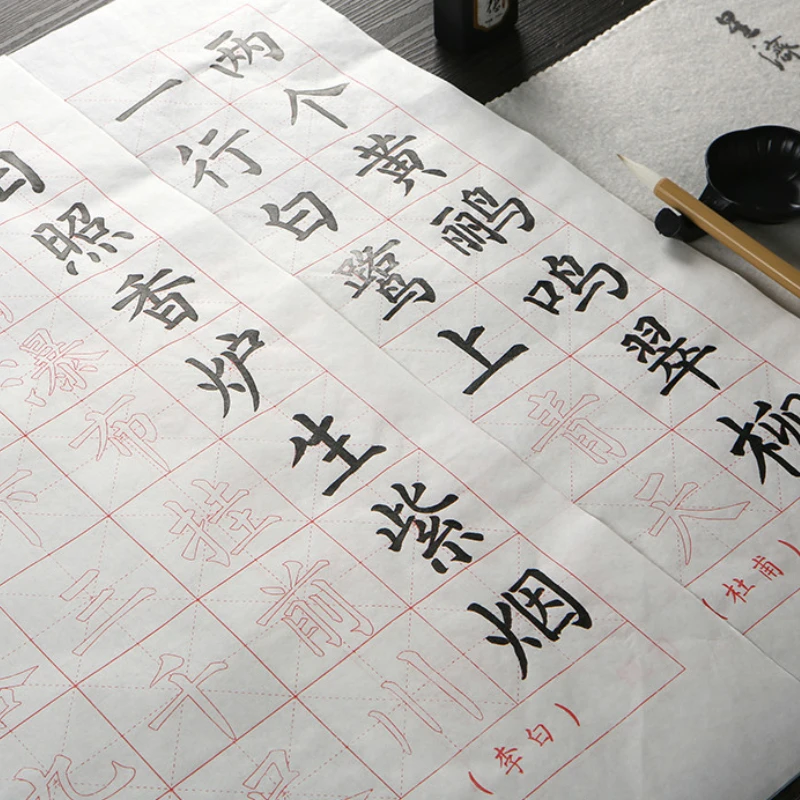 两个黄鹂鸣翠柳
一行白鹭上青天
(杜甫)
日照香炉生紫烟
瀑布挂前川
下三千尺
九
(李白)